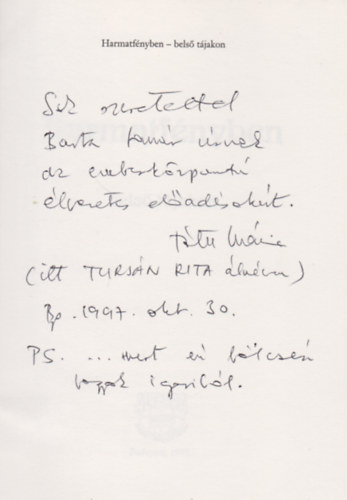 Harmatfényben – belső tájakon
Sok szeretettel
Barta Tamás úrnak
az emberközpontú
élvezetes előadásokért.
Tóth Mária
(itt TURSÁN RITA álnéven)
Bp. 1997. okt. 30.
PS. ... mert én bölcsész
vagyok igazából.